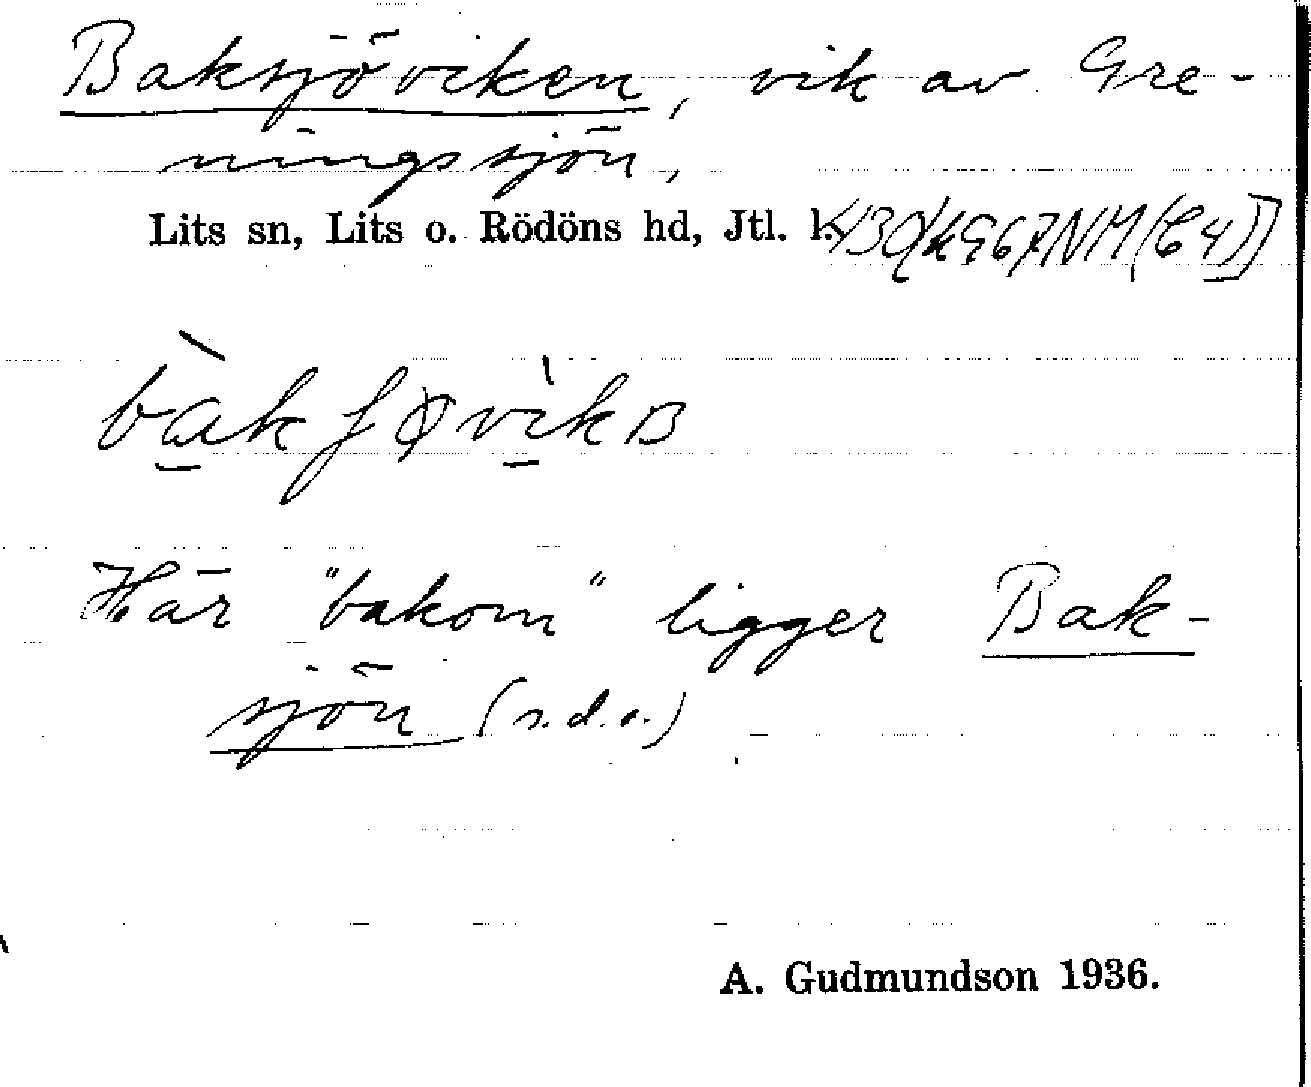 Baksjöviken, vik av Gre-
ningssjön,
Lits sn, Lits o. Rödöns hd, Jtl. l.
Här "bakom" ligger Bak-
sjön (s.d.o.)
A. Gudmundson 1936.